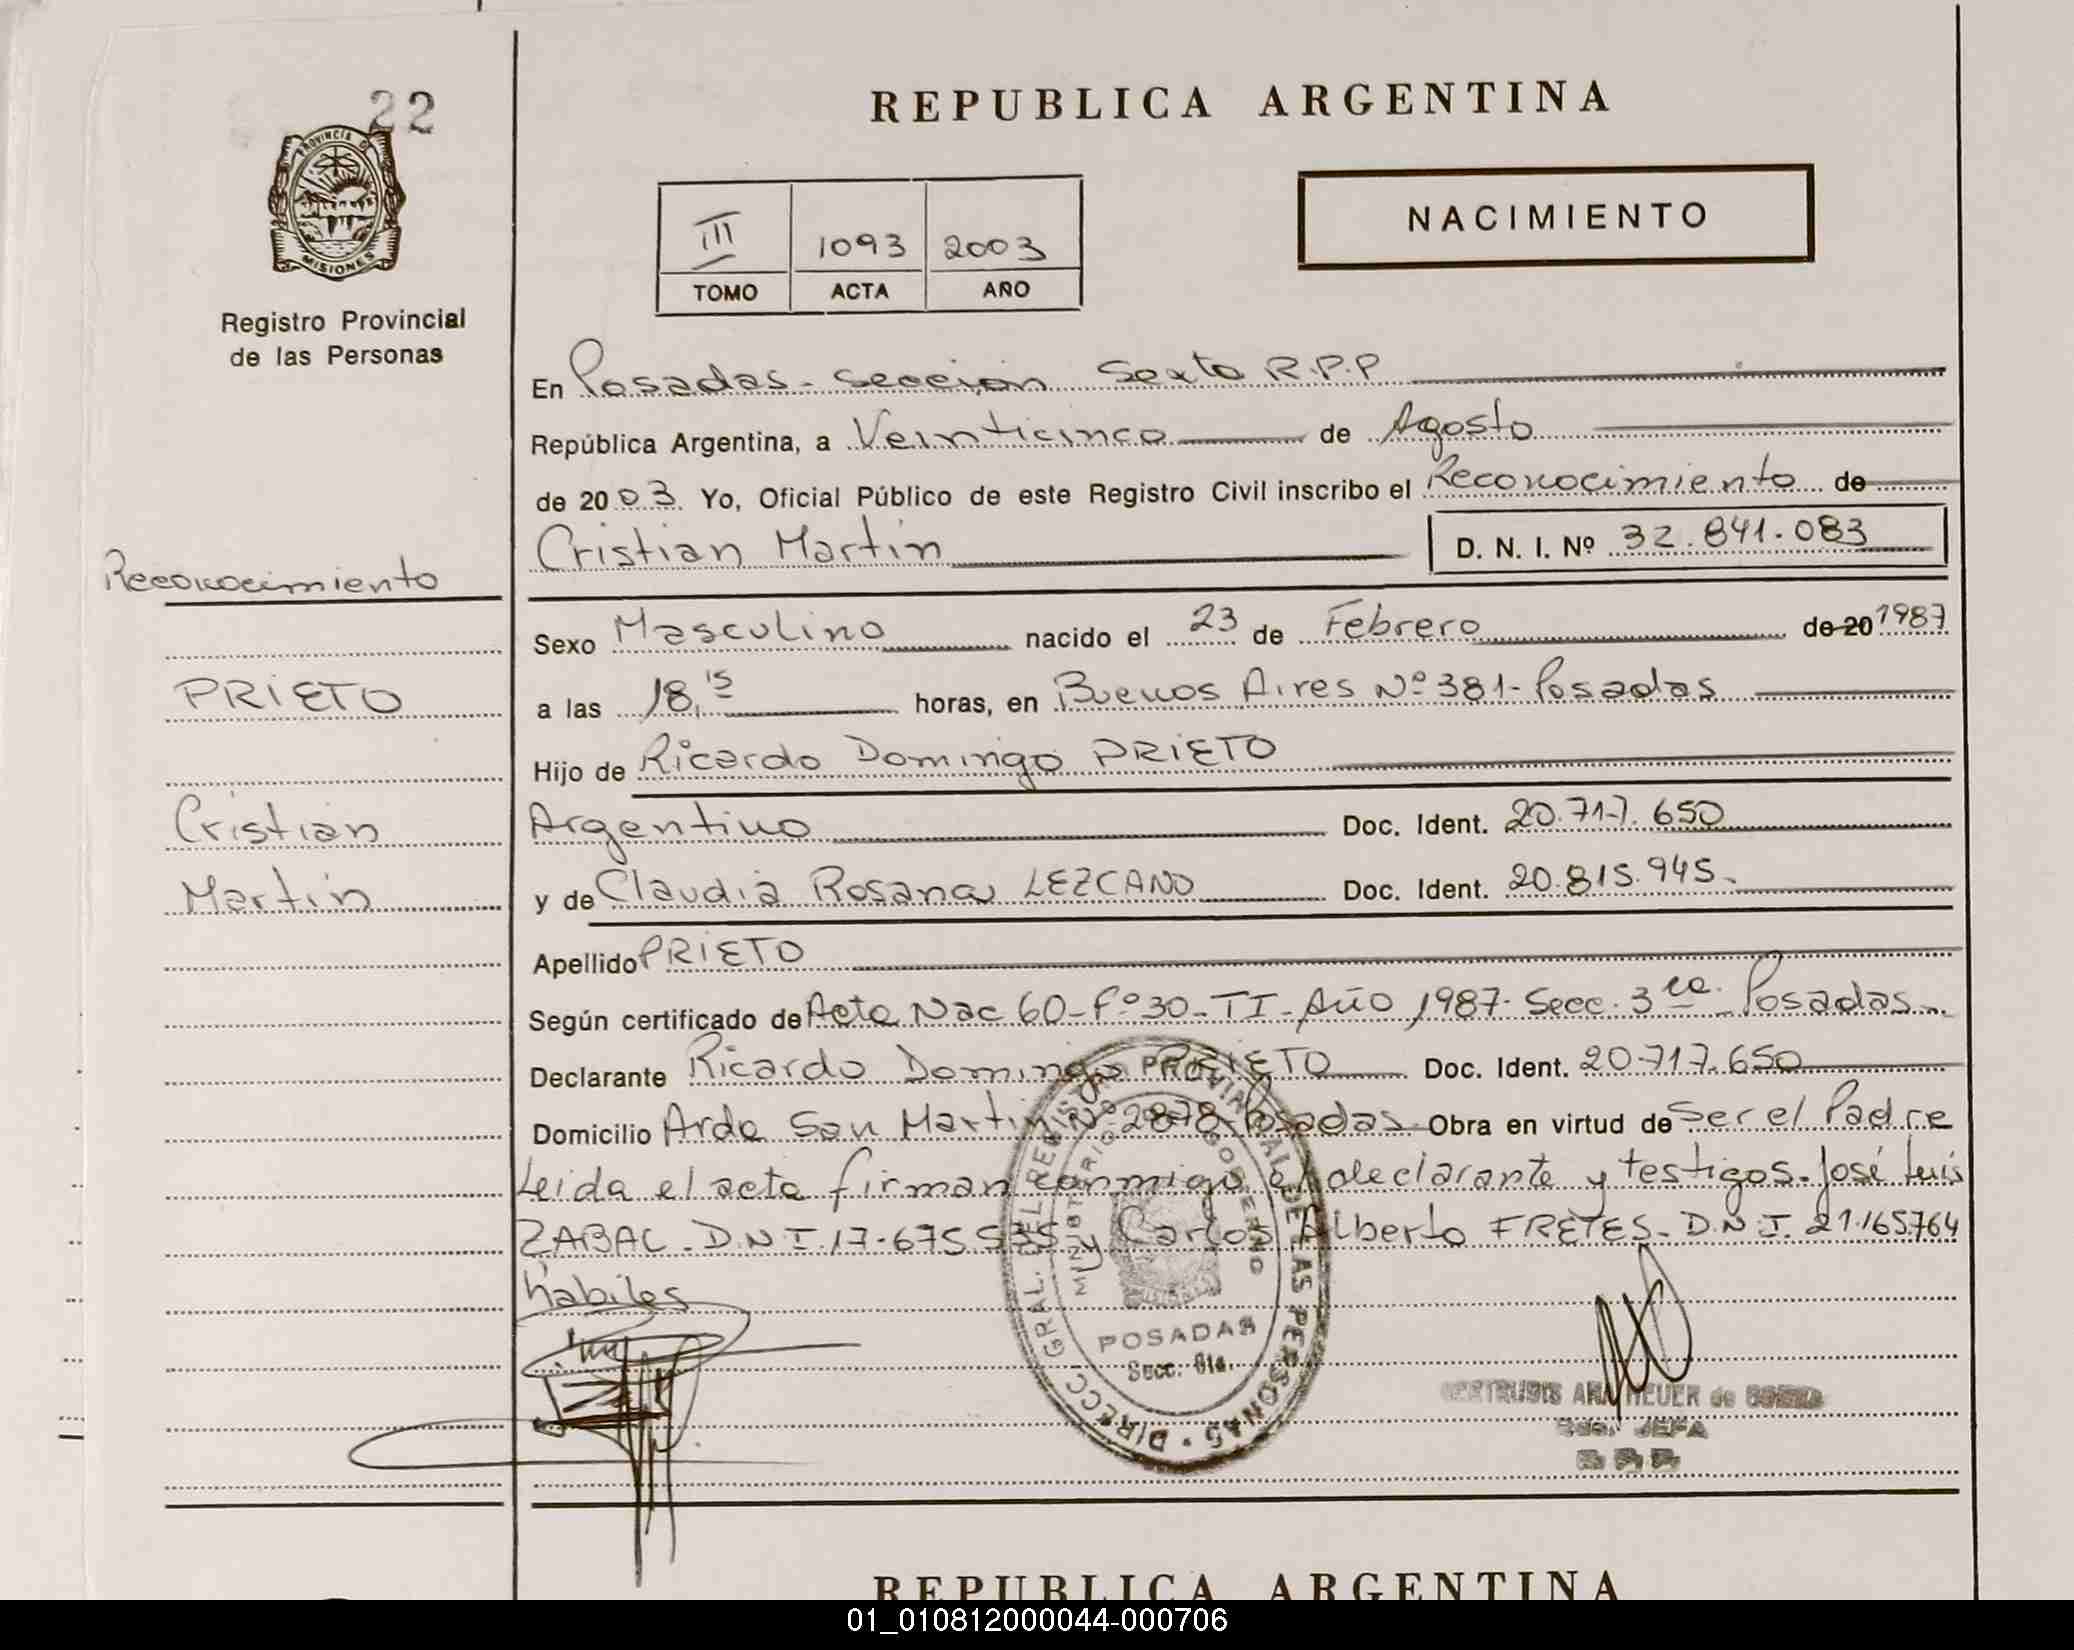 22
PROVINCIA D
MISIONES
Registro Provincial
de las Personas
REPUBLICA ARGENTINA
NACIMIENTO
III 1093 2003
TOMO ACTA AÑO
En Posadas - Sección Sexta R.P.P
República Argentina, a Veinticinco de Agosto
de 2003 Yo, Oficial Público de este Registro Civil inscribo el Reconocimiento de
Cristian Martin D. N. I. Nº 32.841.083
Reconocimiento
PRIETO
Cristian
Martin
Sexo Masculino nacido el 23 de Febrero de 20 1987
a las 18,15 horas, en Buenos Aires Nº 381 - Posadas
Hijo de Ricardo Domingo PRIETO
Argentino Doc. Ident. 20.717.650
y de Claudia Rosana LEZCANO Doc. Ident. 20.815.945.
Apellido PRIETO
Según certificado de Acta Nac 60 - Fº 30 - TI - Año 1987 - Secc. 3ra. Posadas.
Declarante Ricardo Domingo PRIETO Doc. Ident. 20.717.650
Domicilio Avda San Martin Nº 2878 Posadas Obra en virtud de Ser el Padre
Leida el acta firman conmigo el declarante y testigos. José Luis
ZABAL - D.N.I. 17.675.535 y Carlos Alberto FRETES - D.N.I. 21.165764
hábiles
DIRECC. GRAL. DEL REGISTRO PROVINCIAL DE LAS PERSONAS
MINISTERIO GOBIERNO
POSADAS
Secc. 6ta.
JEFA
REPUBLICA ARGENTINA
01_010812000044-000706